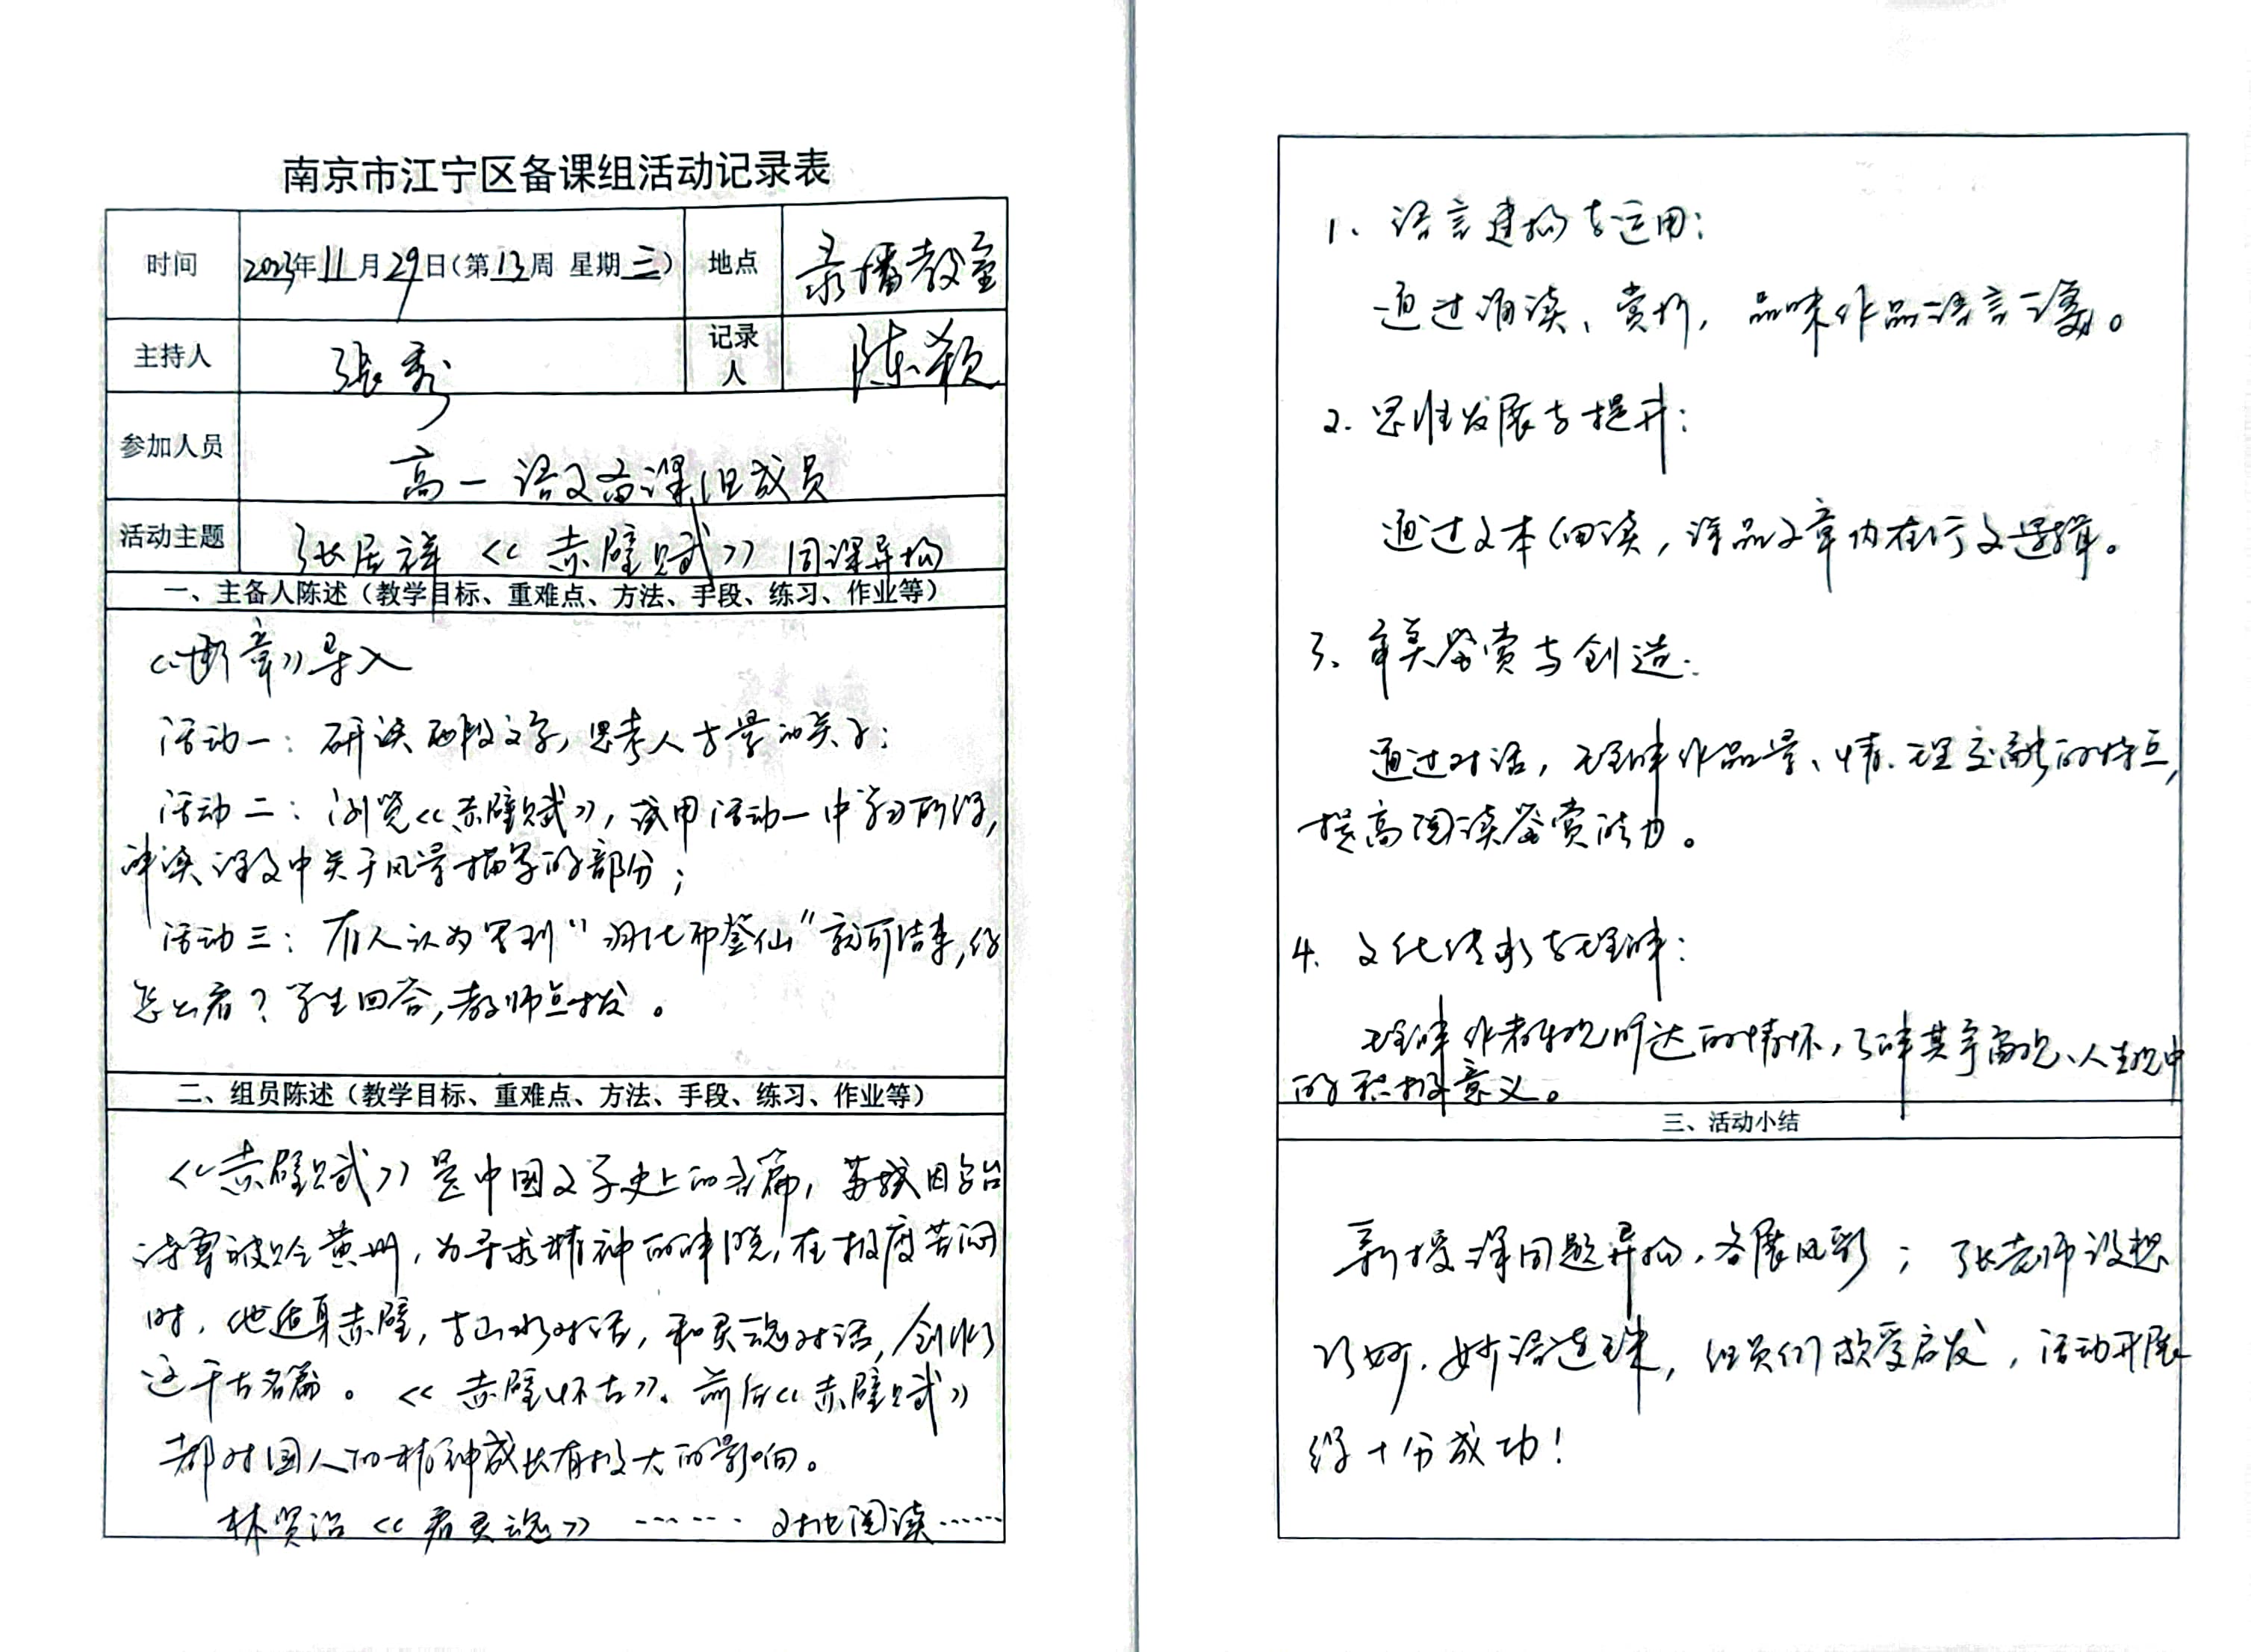 南京市江宁区备课组活动记录表
时间 2023年11月29日(第13周 星期三) 地点 录播教室
主持人 张秀 记录人 陈颖
参加人员 高一语文备课组成员
活动主题 张居祥《赤壁赋》同课异构
一、主备人陈述(教学目标、重难点、方法、手段、练习、作业等)
《断章》导入
活动一:研读两段文字,思考人与景的关系;
活动二:浏览《赤壁赋》,试用活动一中学习所得,
解读课文中关于风景描写的部分;
活动三:有人认为写到"羽化而登仙"就可结束,你
怎么看?学生回答,教师点拨。
二、组员陈述(教学目标、重难点、方法、手段、练习、作业等)
《赤壁赋》是中国文学史上的名篇,苏轼因乌台
诗案被贬黄州,为寻求精神的解脱,在极度苦闷
时,他适身赤壁,与山水对话,和灵魂对话,创作了
这千古名篇。《赤壁怀古》、前后《赤壁赋》
都对国人的精神成长有极大的影响。
林贤治《看灵魂》…… 对比阅读……
1、语言建构与运用:
通过诵读、赏析,品味作品语言之美。
2.思维发展与提升:
通过文本细读,详品文章内在行文逻辑。
3、审美鉴赏与创造:
通过对话,理解作品景、情、理交融的特点,
提高阅读鉴赏能力。
4.文化传承与理解:
理解作者乐观旷达的情怀,了解其宇宙观、人生观中
的积极意义。
三、活动小结
新授课同题异构,各展风彩;张老师设想
巧妙,妙语连珠,组员们颇受启发,活动开展
得十分成功!